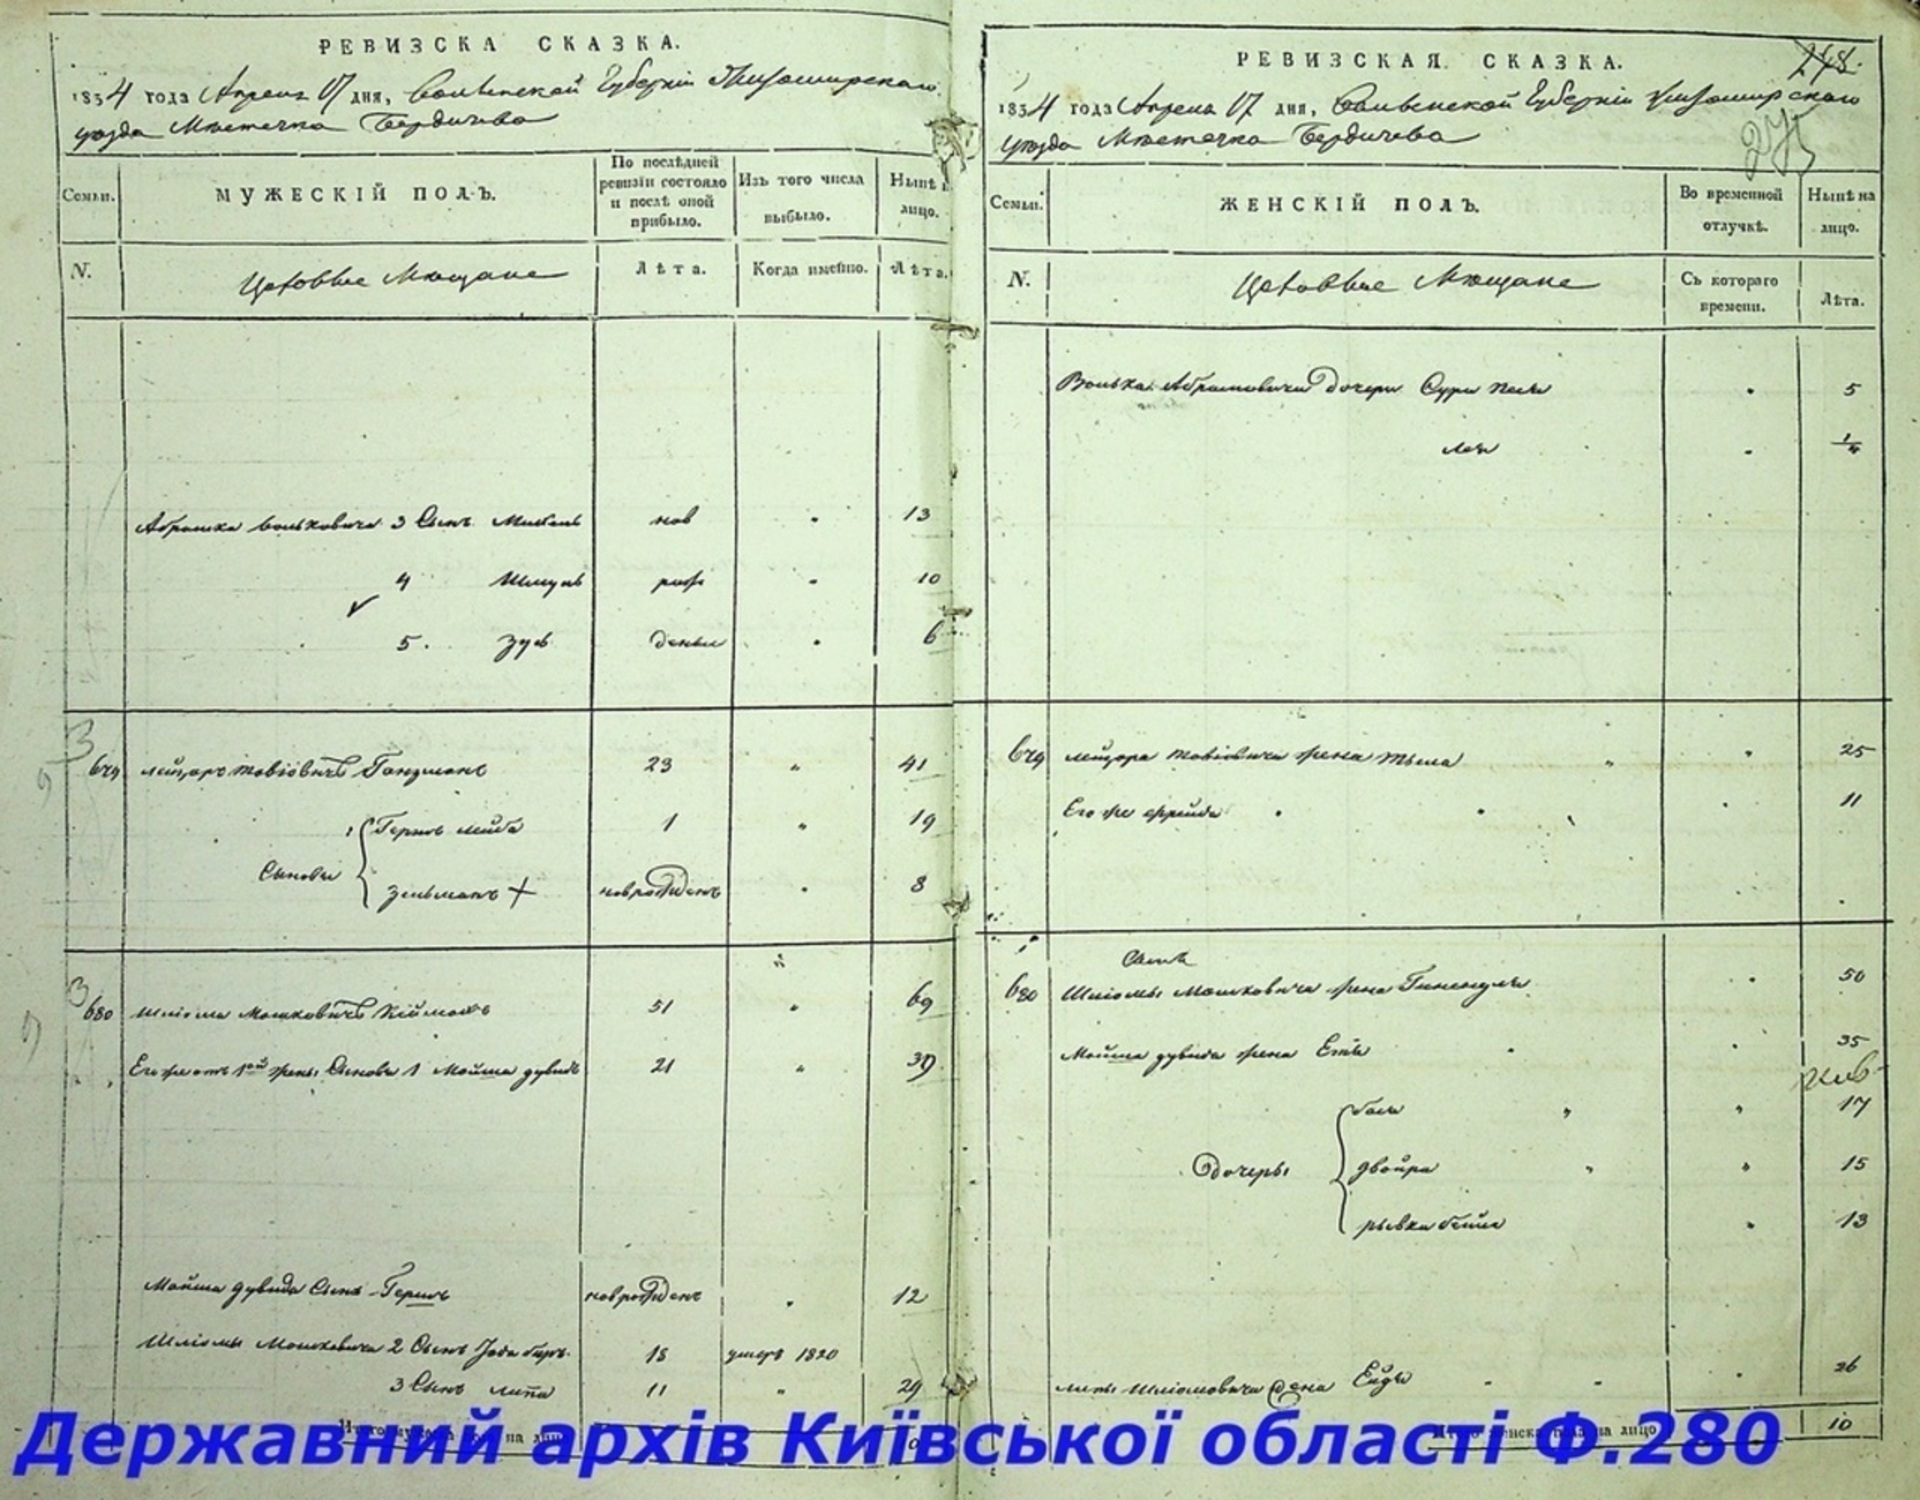 РЕВИЗСКА СКАЗКА.
1834 года Апреля 17 дня, Волынской Губерніи Житомирскаго
уезда Местечка Бердичева
Семьи.
МУЖЕСКІЙ ПОЛЪ.
По послѣдней ревизіи состояло и послѣ оной прибыло.
Изъ того числа выбыло.
Нынѣ на лицо.
N.
Цеховые Мещане
Лѣта.
Когда имянно.
Лѣта.
Абрашка Вольковича 3 Сынъ нов 13
4 Шмуль рож 10
5. Зусь денъ 6
679 Лейзоръ Товіовичъ 23 41
Сыновья
1 Гершъ Лейба 1 19
Зельманъ + новрожденъ 8
680 Шліома Мошковичъ 51 69
Его же отъ 1ой жены Сыновья 1 Мойша Дувидъ 21 39
Мойша Дувида Сынъ Гершъ новрожденъ 12
Шліомы Мошковича 2 Сынъ 18 умеръ 1820
3 Сынъ Липа 11 29
РЕВИЗСКАЯ СКАЗКА.
248.
275
1834 года Апреля 17 дня, Волынской Губерніи Житомирскаго
уезда Местечка Бердичева
Семьи.
ЖЕНСКІЙ ПОЛЪ.
Во временной отлучкѣ.
Нынѣ на лицо.
N.
Цеховые Мещане
Съ котораго времени.
Лѣта.
Волька Абрамовича дочери Сура 5
Лея 1/4
679 Лейзора Товіовича жена 25
Его же Фрейда 11
680 Шліомы Мошковича жена 50
Мойша Дувида жена 35
17
Дочеры
Двойра 15
Рывка Бейла 13
Липы Шліомовича жена 26
10
Державний архів Київської області Ф.280